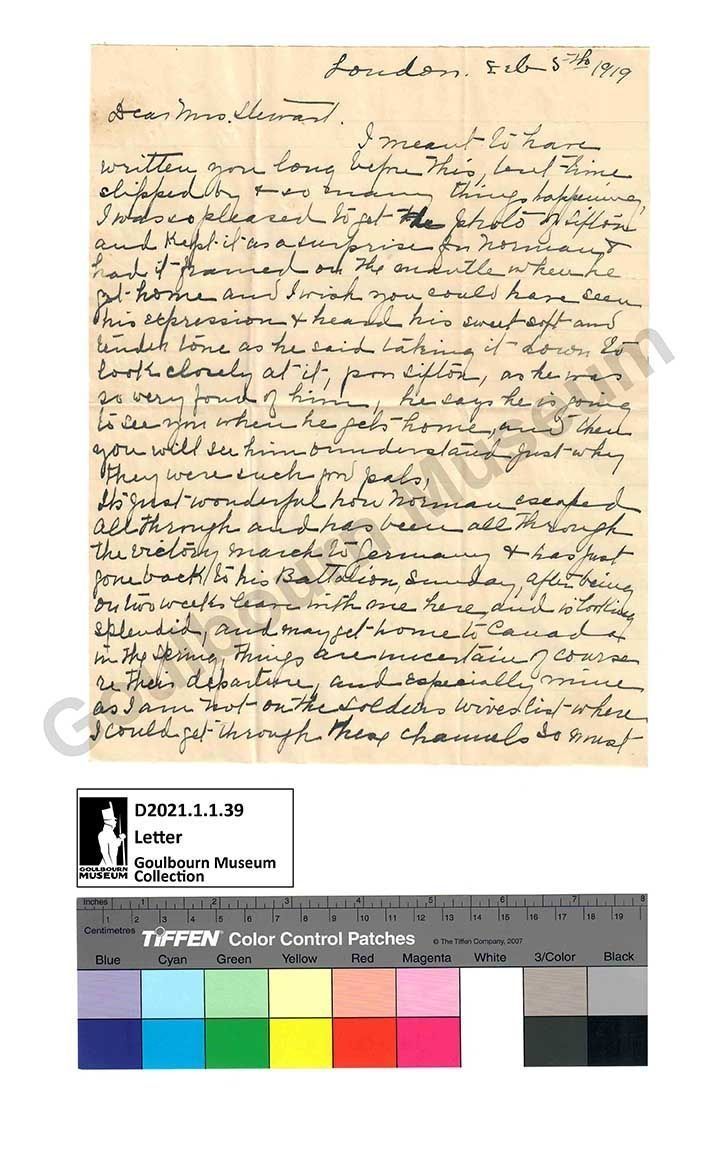 London. Feb 5th 1919
Dear Mrs. Stewart.
I meant to have
written you long before this, but time
slipped by & so many things happening,
I was so pleased to get the photo of Sifton
and kept it as a surprise for Norman &
had it framed on the mantle when he
got home and I wish you could have seen
his expression & heard his sweet soft and
tender tone as he said taking it down to
look closely at it, poor Sifton, as he was
so very fond of him, he says he is going
to see you when he gets home, and then
you will see him & understand just why
they were such good pals,
It's just wonderful how Norman escaped
all through and has been all through
the victory march to Germany & has just
gone back to his Battalion, Sunday, after being
on two weeks leave with me here, and is looking
splendid, and may get home to Canada
in the spring, things are uncertain of course
re their departure, and especially mine
as I am not on the soldiers wives list where
I could get through these channels so must
Goulbourn Museum
D2021.1.1.39
Letter
Goulbourn Museum
Collection
GOULBOURN
MUSEUM
Inches 1 2 3 4 5 6 7 8
Centimetres 1 2 3 4 5 6 7 8 9 10 11 12 13 14 15 16 17 18 19
TIFFEN Color Control Patches © The Tiffen Company, 2007
Blue Cyan Green Yellow Red Magenta White 3/Color Black